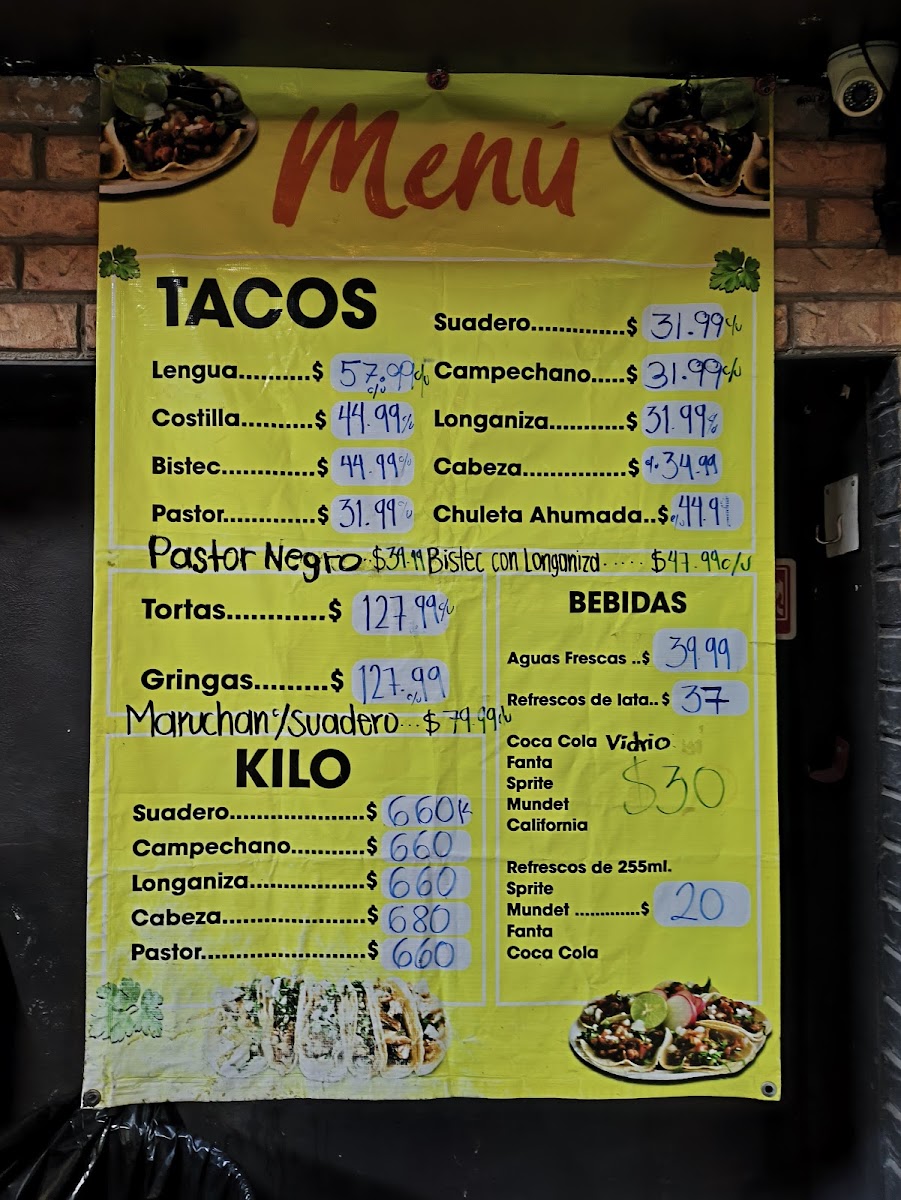 Menú
TACOS
Lengua..........$ 57.99 c/u
Costilla..........$ 44.99 c/u
Bistec.............$ 44.99 c/u
Pastor.............$ 31.99 c/u
Suadero..............$ 31.99 c/u
Campechano.....$ 31.99 c/u
Longaniza...........$ 31.99 c/u
Cabeza...............$ c/u 34.99
Chuleta Ahumada..$ c/u 44.9
Pastor Negro..$39.99 Bistec con Longaniza.....$47.99 c/u
Tortas............$ 127.99 c/u
Gringas.........$ 127.99 c/u
Maruchan c/Suadero...$ 79.99 c/u
KILO
Suadero....................$ 660 K
Campechano...........$ 660
Longaniza.................$ 660
Cabeza.....................$ 680
Pastor.........................$ 660
BEBIDAS
Aguas Frescas ..$ 39.99
Refrescos de lata..$ 37
Coca Cola Vidrio
Fanta
Sprite $30
Mundet
California
Refrescos de 255ml.
Sprite
Mundet .............$ 20
Fanta
Coca Cola